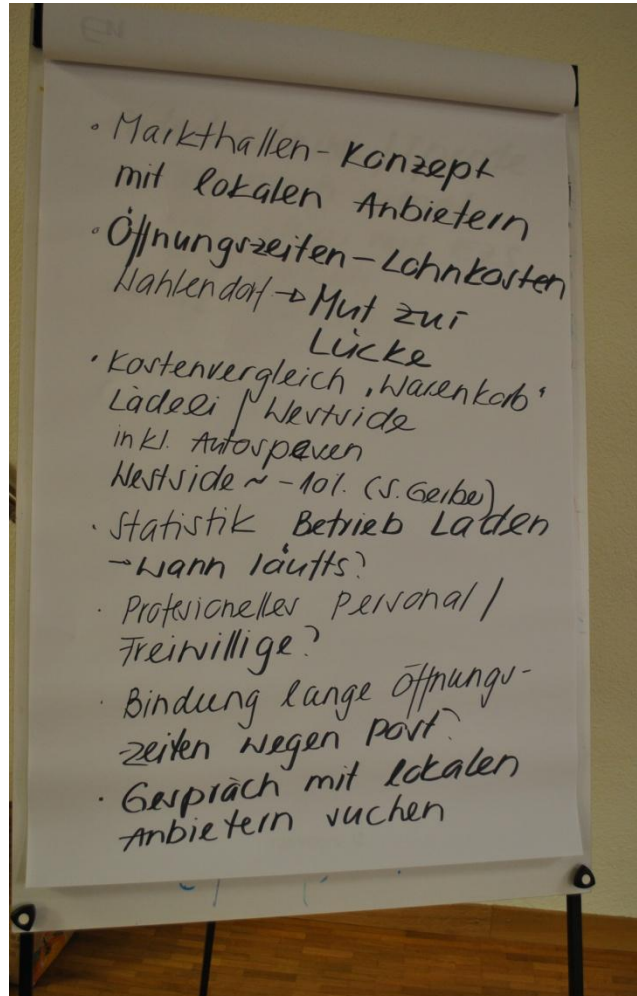 • Markthallen - Konzept
mit lokalen Anbietern
• Öffnungszeiten - Lohnkosten
Wahlendorf → Mut zur
Lücke
• Kostenvergleich "Warenkorb"
Lädeli / Westside
inkl. Autospesen
Westside ~ -10%. (S. Gerber)
• Statistik Betrieb Laden
→ wann läufts?
• Profesioneller Personal /
Freiwillige?
• Bindung lange Öffnungs-
zeiten wegen Post?
• Gespräch mit lokalen
Anbietern suchen